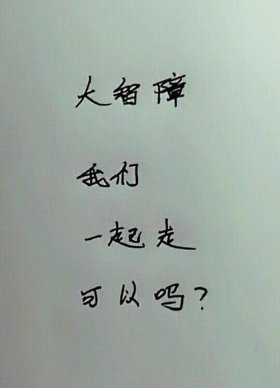 大智障
我们
一起走
可以吗？